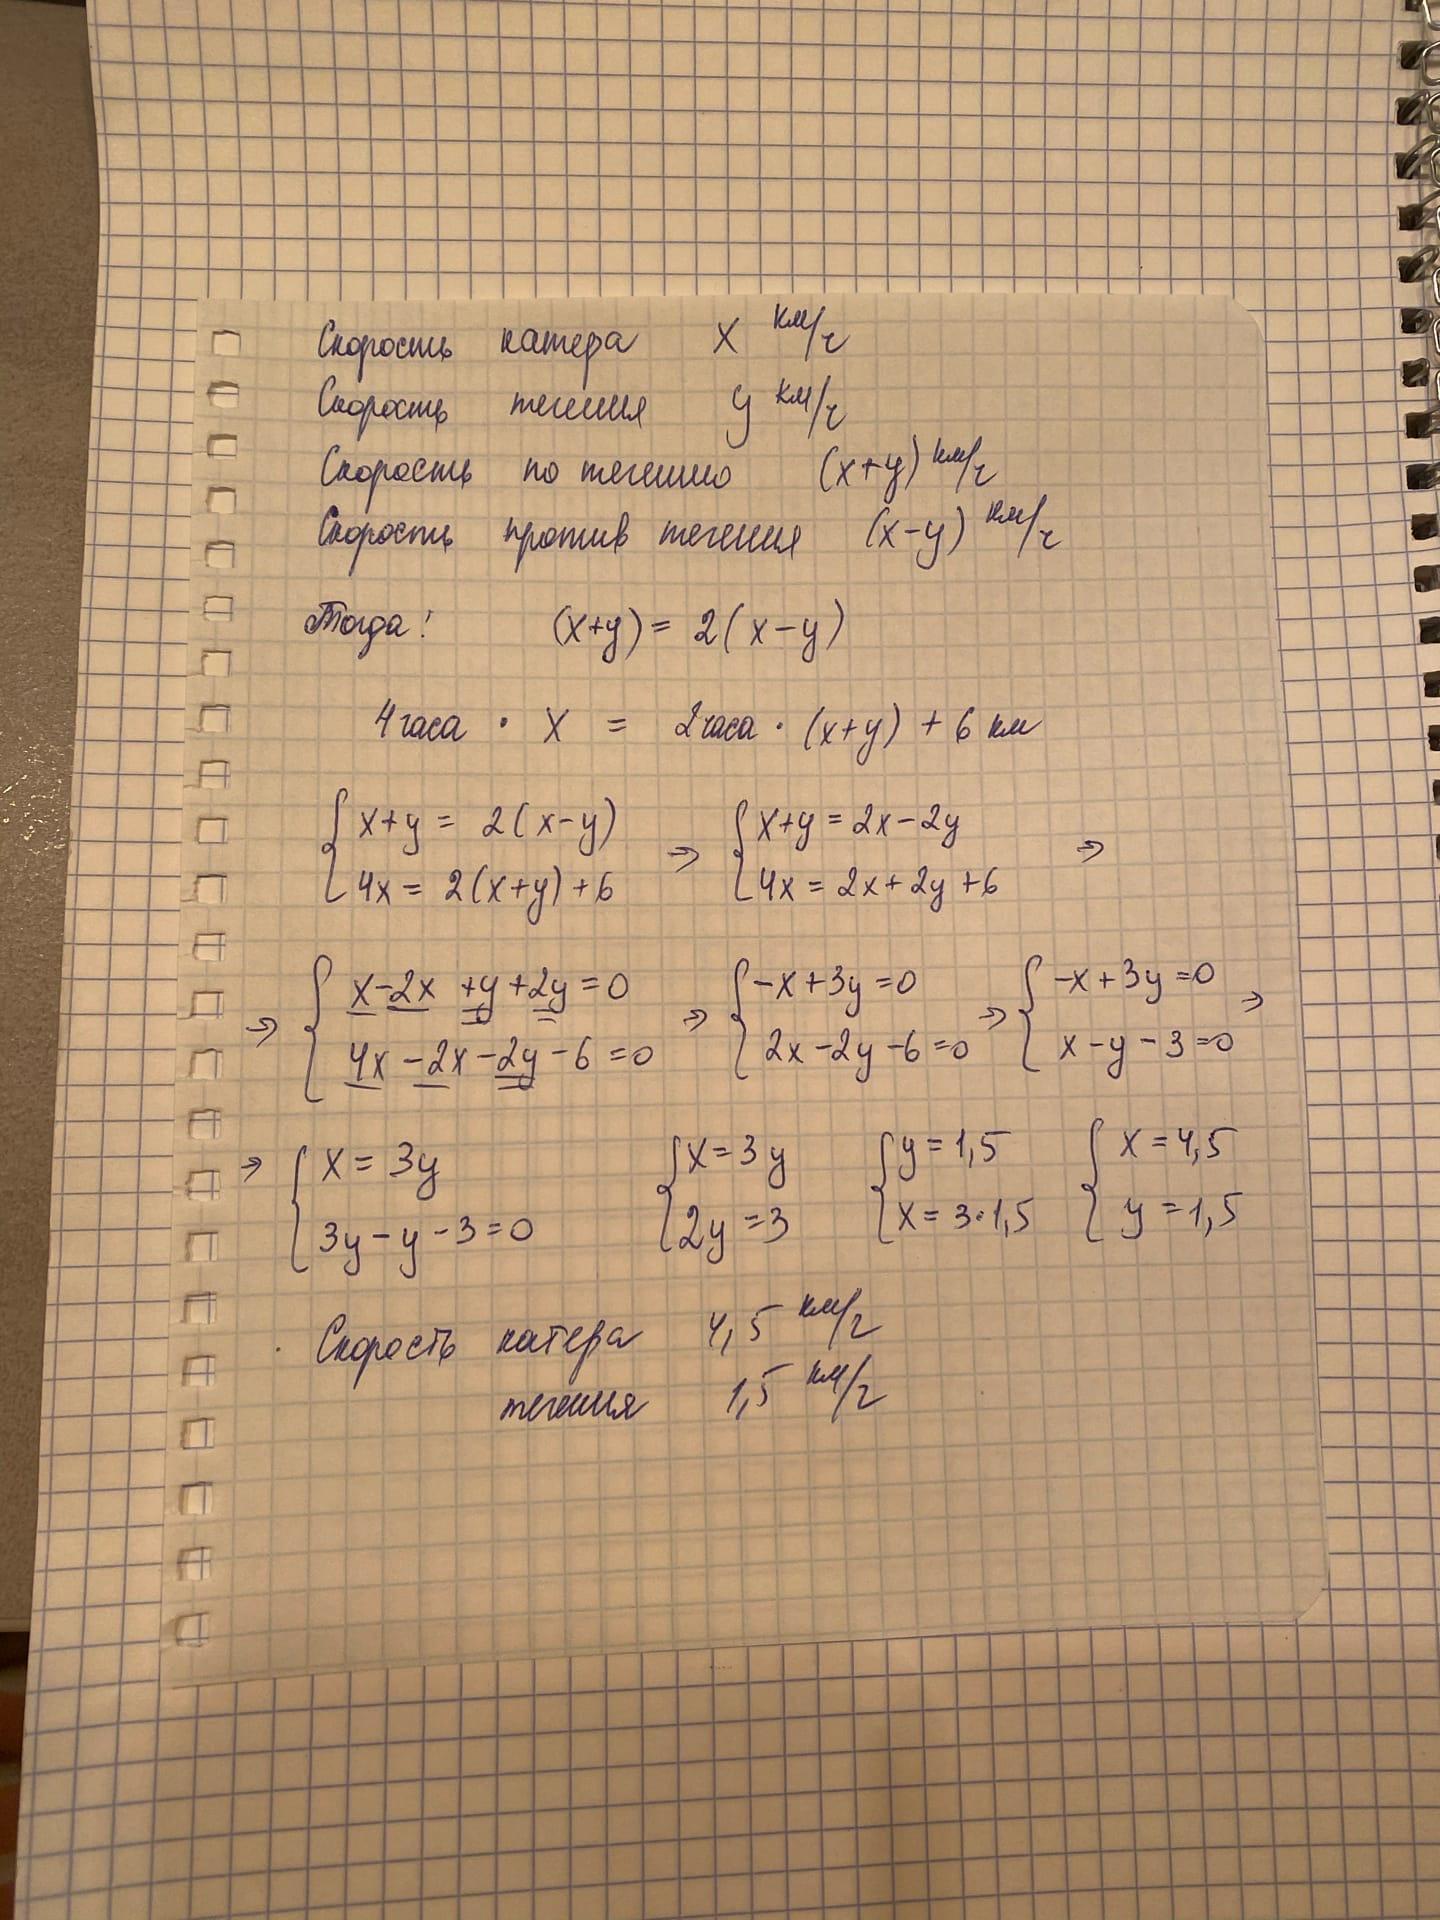 Скорость катера x км/ч
Скорость течения y км/ч
Скорость по течению (x+y) км/ч
Скорость против течения (x-y) км/ч
Тогда: (x+y) = 2(x-y)
4 часа · x = 2 часа · (x+y) + 6 км
{ x+y = 2(x-y) ⇒ { x+y = 2x-2y ⇒
4x = 2(x+y)+6 4x = 2x+2y+6
⇒ { x-2x +y+2y=0 ⇒ { -x+3y=0 ⇒ { -x+3y=0 ⇒
4x-2x-2y-6=0 2x-2y-6=0 x-y-3=0
⇒ { x=3y { x=3y { y=1,5 { x=4,5
3y-y-3=0 2y=3 x=3·1,5 y=1,5
Скорость катера 4,5 км/ч
течения 1,5 км/ч